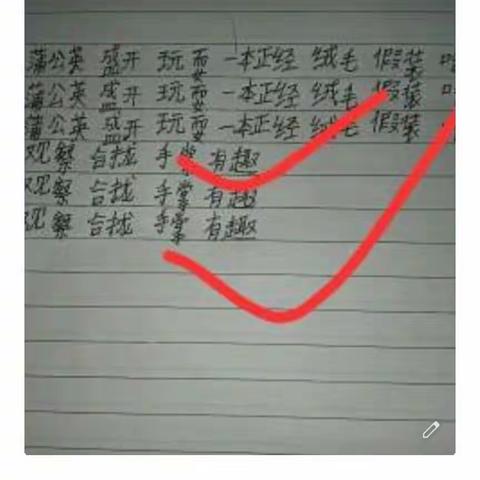 蒲公英 盛开 玩耍 一本正经 绒毛 假装
蒲公英 盛开 玩耍 一本正经 绒毛 假装
蒲公英 盛开 玩耍 一本正经 绒毛 假装
观察 合拢 手掌 有趣
观察 合拢 手掌 有趣
观察 合拢 手掌 有趣